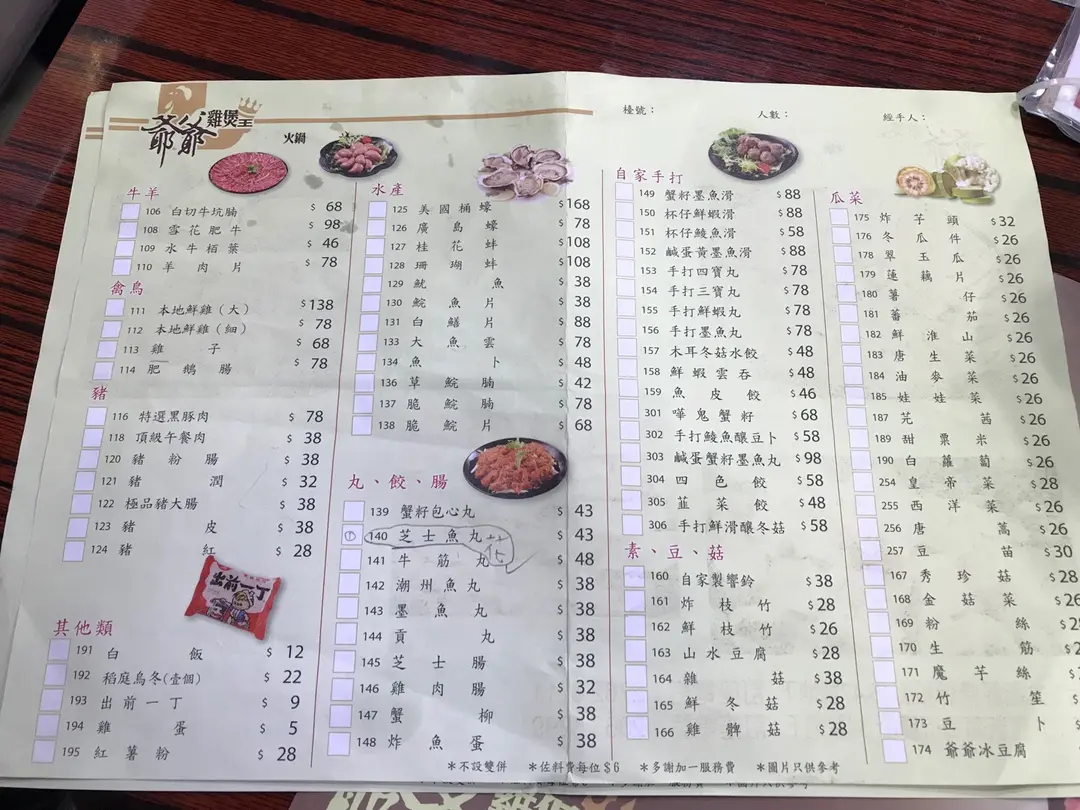 爺爺 雞煲王
火鍋
檯號：
人數：
經手人：
牛羊
106 白切牛坑腩 $ 68
108 雪花肥牛 $ 98
109 水牛栢葉 $ 46
110 羊肉片 $ 78
禽鳥
111 本地鮮雞（大） $138
112 本地鮮雞（細） $ 78
113 雞子 $ 68
114 肥鵝腸 $ 78
豬
116 特選黑豚肉 $ 78
118 頂級午餐肉 $ 38
120 豬粉腸 $ 38
121 豬潤 $ 32
122 極品豬大腸 $ 38
123 豬皮 $ 38
124 豬紅 $ 28
出前一丁
其他類
191 白飯 $ 12
192 稻庭烏冬(壹個) $ 22
193 出前一丁 $ 9
194 雞蛋 $ 5
195 紅薯粉 $ 28
水產
125 美國桶蠔 $168
126 廣島蠔 $ 78
127 桂花蚌 $108
128 珊瑚蚌 $108
129 魷魚 $ 38
130 鯇魚片 $ 38
131 白鱔片 $ 88
133 大魚雲 $ 78
134 魚卜 $ 48
136 草鯇腩 $ 42
137 脆鯇腩 $ 78
138 脆鯇片 $ 68
丸、餃、腸
139 蟹籽包心丸 $ 43
140 芝士魚丸 $ 43
141 牛筋丸 $ 48
142 潮州魚丸 $ 38
143 墨魚丸 $ 38
144 貢丸 $ 38
145 芝士腸 $ 38
146 雞肉腸 $ 32
147 蟹柳 $ 38
148 炸魚蛋 $ 38
自家手打
149 蟹籽墨魚滑 $88
150 杯仔鮮蝦滑 $88
151 杯仔鯪魚滑 $58
152 鹹蛋黃墨魚滑 $88
153 手打四寶丸 $78
154 手打三寶丸 $78
155 手打鮮蝦丸 $78
156 手打墨魚丸 $78
157 木耳冬菇水餃 $48
158 鮮蝦雲吞 $48
159 魚皮餃 $46
301 嘩鬼蟹籽 $68
302 手打鯪魚釀豆卜 $58
303 鹹蛋蟹籽墨魚丸 $98
304 四色餃 $58
305 韮菜餃 $48
306 手打鮮滑釀冬菇 $58
素、豆、菇
160 自家製響鈴 $38
161 炸枝竹 $28
162 鮮枝竹 $26
163 山水豆腐 $28
164 雜菇 $38
165 鮮冬菇 $28
166 雞髀菇 $28
瓜菜
175 炸芋頭 $32
176 冬瓜件 $26
178 翠玉瓜 $26
179 蓮藕片 $26
180 薯仔 $26
181 蕃茄 $26
182 鮮淮山 $26
183 唐生菜 $26
184 油麥菜 $26
185 娃娃菜 $26
187 芫茜 $26
189 甜粟米 $26
190 白蘿蔔 $26
254 皇帝菜 $28
255 西洋菜 $26
256 唐蒿 $26
257 豆苗 $30
167 秀珍菇 $28
168 金菇菜 $26
169 粉絲
170 生筋
171 魔芋絲
172 竹笙
173 豆卜
174 爺爺冰豆腐
*不設雙併 *佐料費每位$6 *多謝加一服務費 *圖片只供參考